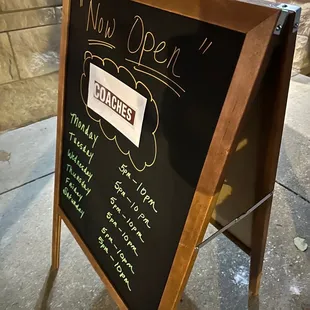 "Now Open"
COACHES
Monday 5pm-10pm
Tuesday 5pm-10pm
Wednesday 5pm-10pm
Thursday 5pm-10pm
Friday 5pm-10pm
Saturday 5pm-10pm